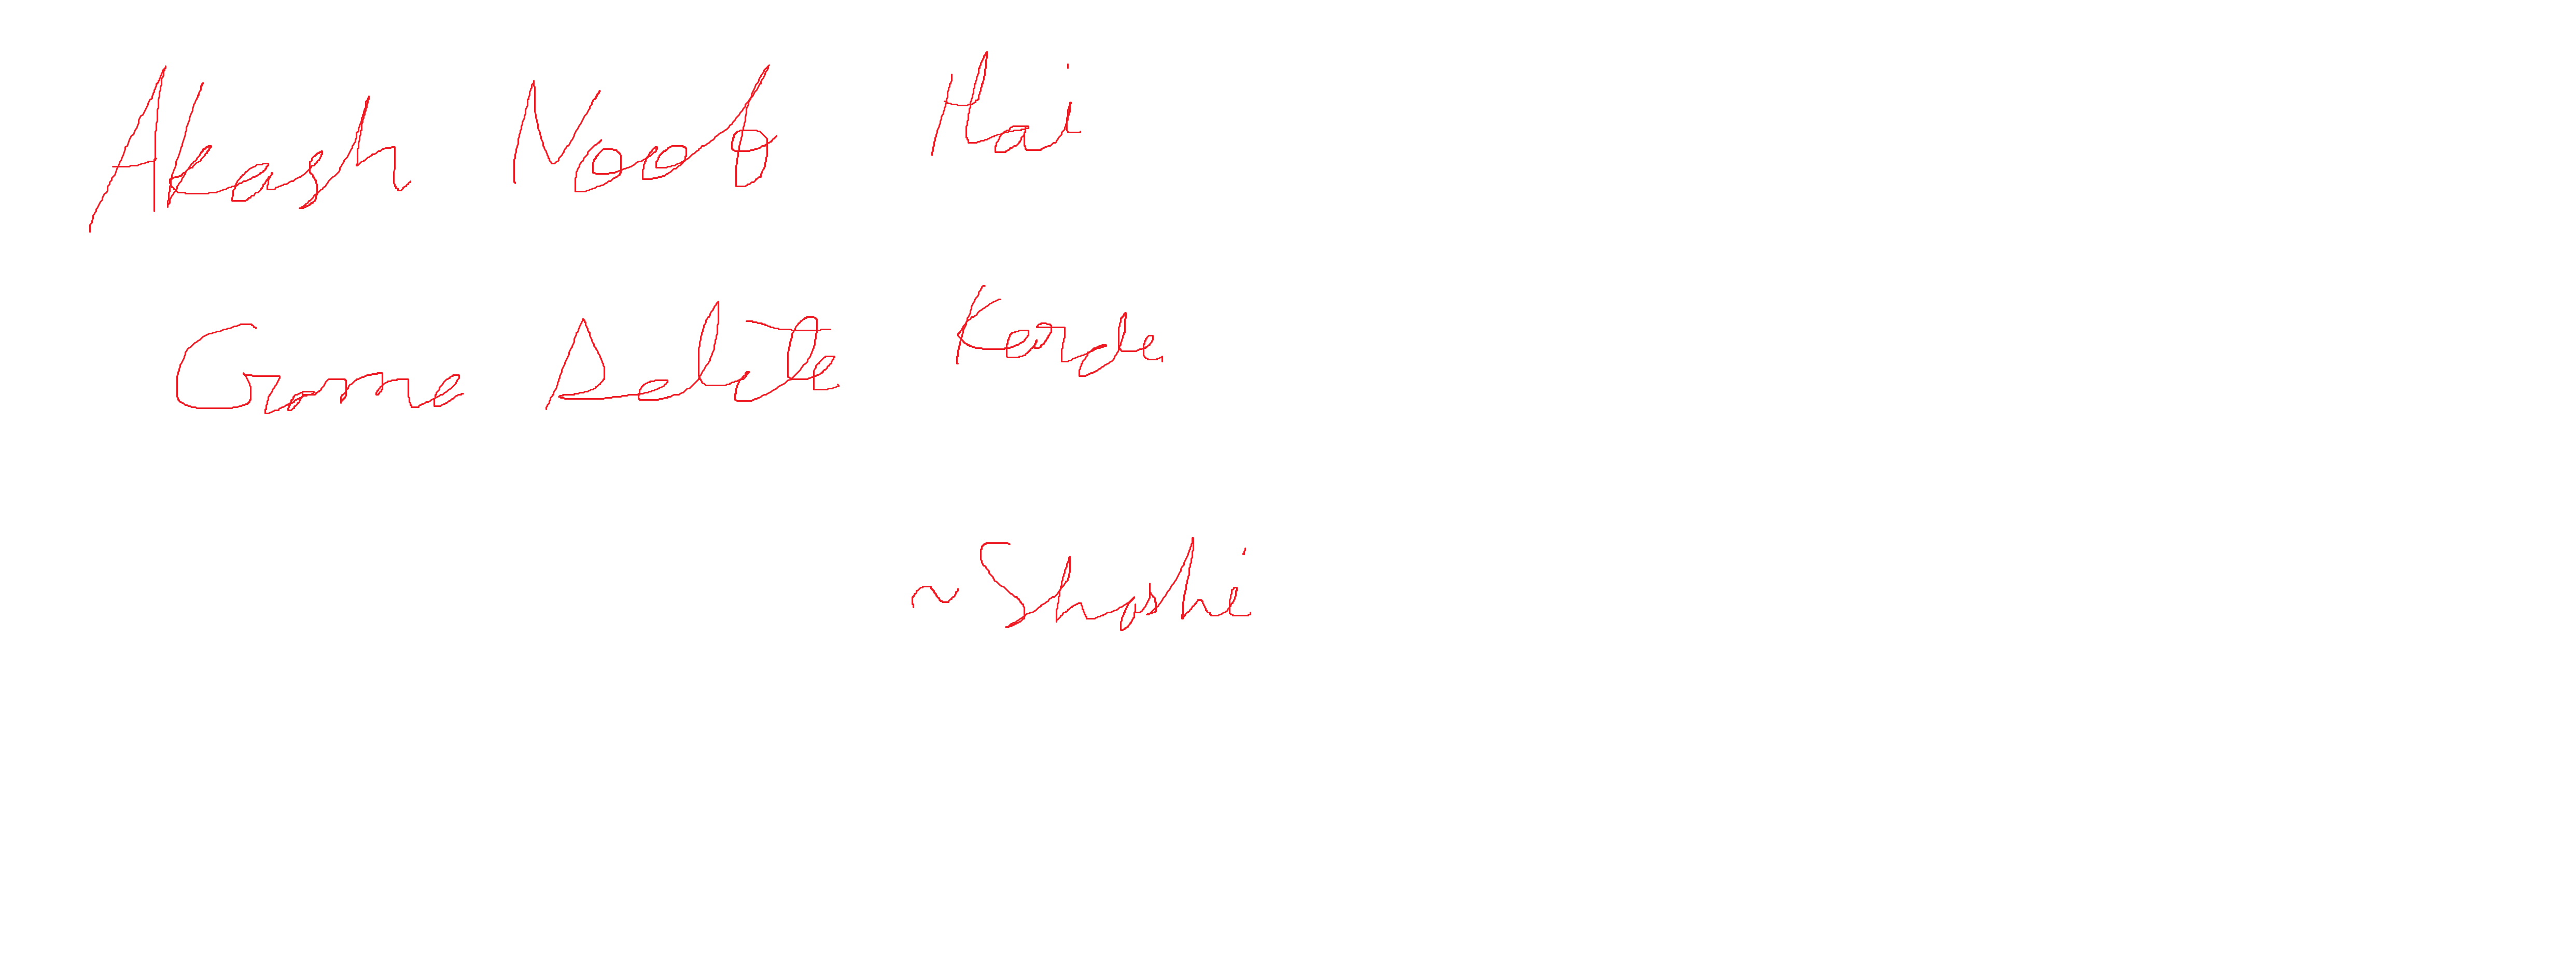 Akash Noob Hai
Game Delite Karde
~Shashi